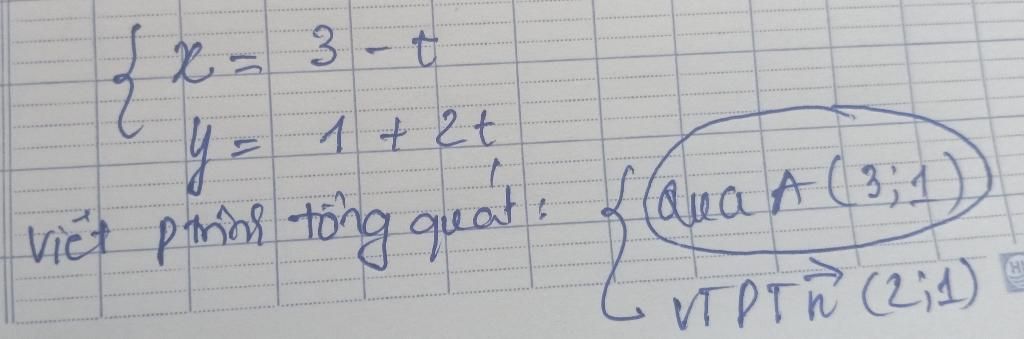 x = 3 - t
y = 1 + 2t
viết ptrình tổng quát: { qua A (3;1)
VTPT n⃗ (2;1)